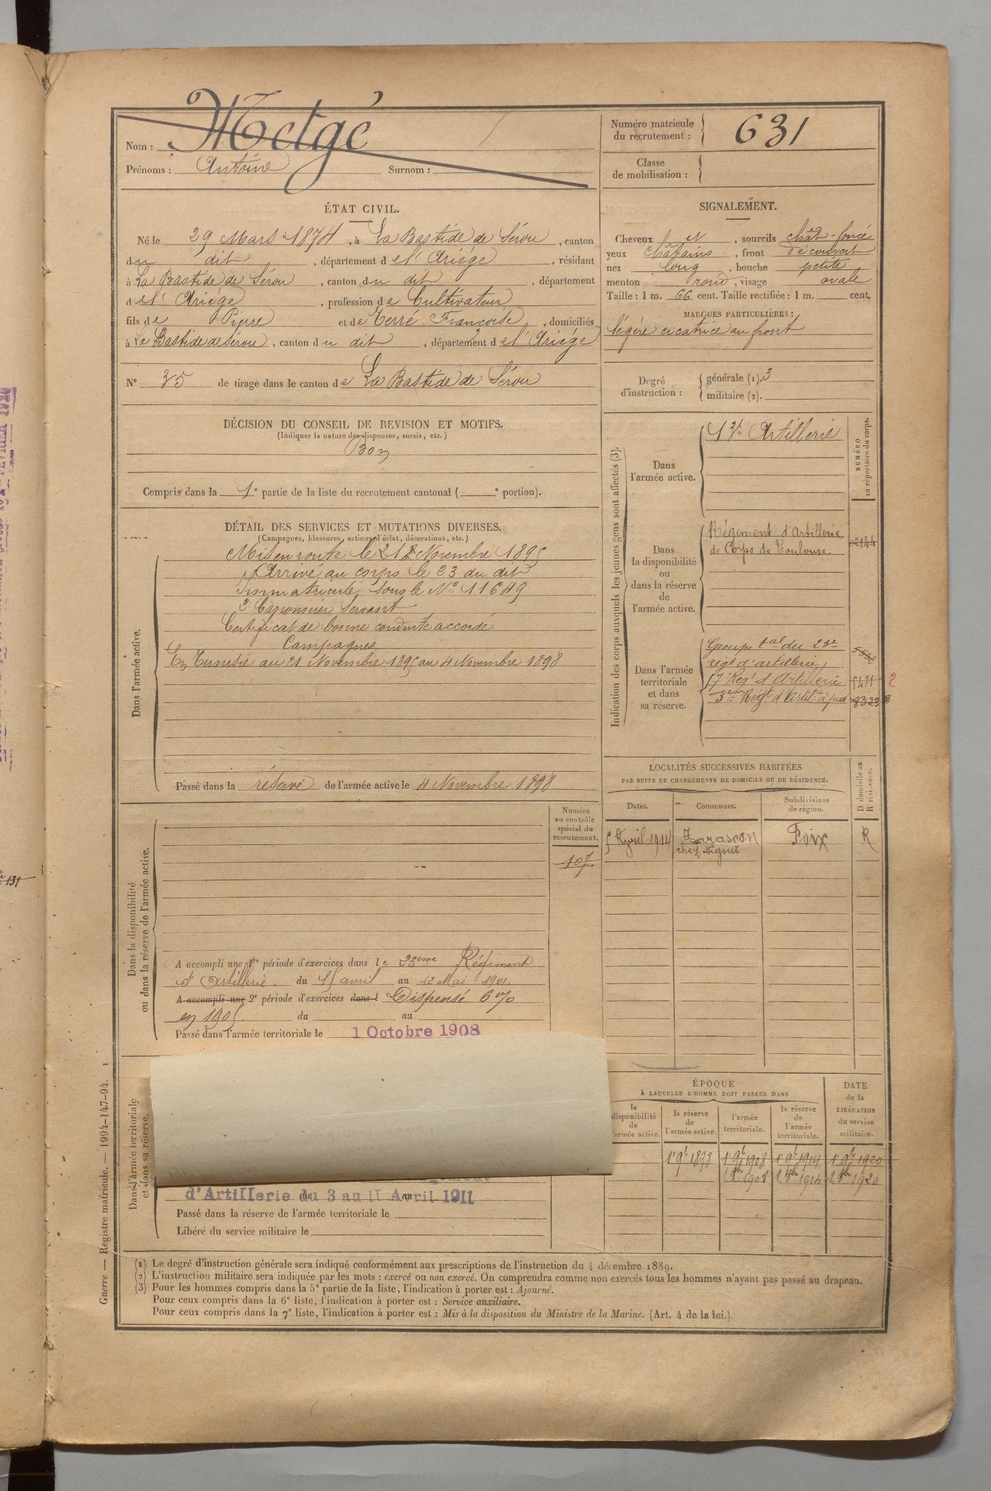 Nom : Metgé
Prénoms : Antoine Surnom :
Numéro matricule du recrutement : 631
Classe de mobilisation :
ÉTAT CIVIL.
Né le 29 Mars 1874, à La Bastide de Sérou, canton
du dit, département de l'Ariége, résidant
à La Bastide de Sérou, canton du dit, département
de l'Ariége, profession de Cultivateur
fils de Pierre et de Terré Françoise, domiciliés
à La Bastide de Sérou, canton du dit, département de l'Ariége
N° 35 de tirage dans le canton de La Bastide de Sérou
SIGNALEMENT.
Cheveux et, sourcils chât-foncé
yeux châtains, front découvert
nez long, bouche petite
menton rond, visage ovale
Taille : 1 m. 66 cent. Taille rectifiée : 1 m. cent.
MARQUES PARTICULIÈRES :
légère cicatrice au front
Degré d'instruction : générale (1). 3
militaire (2).
DÉCISION DU CONSEIL DE REVISION ET MOTIFS.
(Indiquer la nature des dispenses, sursis, etc.)
Bon
Compris dans la 1e partie de la liste du recrutement cantonal ( e portion).
DÉTAIL DES SERVICES ET MUTATIONS DIVERSES.
(Campagnes, blessures, actions d'éclat, décorations, etc.)
Dans l'armée active.
Mis en route le 21 Novembre 1895
Arrivé au corps le 23 du dit
Immatriculé sous le N° 11649
2e Canonnier Servant
Certificat de bonne conduite accordé
Campagnes
En Tunisie au 21 Novembre 1895 au 4 Novembre 1898
Passé dans la réserve de l'armée active le 4 Novembre 1898
Indication des corps auxquels les jeunes gens sont affectés (3).
NUMÉRO au répertoire du corps.
Dans l'armée active.
Artillerie
Dans la disponibilité ou dans la réserve de l'armée active.
Régiment d'Artillerie
de Corps de Toulouse
Dans l'armée territoriale et dans sa réserve.
Groupe tal du 23e
régt d'artillerie
17 Régt d'Artillerie
3e Régt d'Artillie à pied
LOCALITÉS SUCCESSIVES HABITÉES
PAR SUITE DE CHANGEMENTS DE DOMICILE OU DE RÉSIDENCE.
Dates. Communes. Subdivisions de région. D domicile ou R résidence.
5 Avril 1914 Tarascon Foix R
chez
Numéro au contrôle spécial du recrutement.
107
Dans la disponibilité ou dans la réserve de l'armée active.
A accompli une 1re période d'exercices dans le 23eme Régiment
d'Artillerie du 15 avril au 12 Mai 1901
A accompli une 2e période d'exercices dans l Dispensé
en 1905 du au
Passé dans l'armée territoriale le 1 Octobre 1908
Dans l'armée territoriale et dans sa réserve.
d'Artillerie du 3 au 11 Avril 1911
Passé dans la réserve de l'armée territoriale le
Libéré du service militaire le
ÉPOQUE
À LAQUELLE L'HOMME DOIT PASSER DANS
DATE de la LIBÉRATION du service militaire.
la disponibilité de l'armée active. la réserve de l'armée active. l'armée territoriale. la réserve de l'armée territoriale.
1 9e 1898 1 9e 1908 1 9e 1914 1 9e 1920
1 8bre 1908 1 8bre 1914 1 8bre 1920
(1) Le degré d'instruction générale sera indiqué conformément aux prescriptions de l'instruction du 4 décembre 1889.
(2) L'instruction militaire sera indiquée par les mots : exercé ou non exercé. On comprendra comme non exercés tous les hommes n'ayant pas passé au drapeau.
(3) Pour les hommes compris dans la 5e partie de la liste, l'indication à porter est : Ajourné.
Pour ceux compris dans la 6e liste, l'indication à porter est : Service auxiliaire.
Pour ceux compris dans la 7e liste, l'indication à porter est : Mis à la disposition du Ministre de la Marine. (Art. 4 de la loi.)
Guerre — Registre matricule. — 1994-147-94.